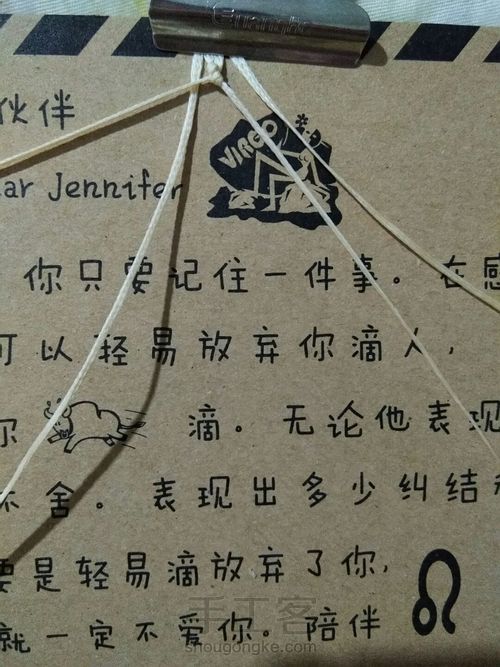 伙伴
ar Jennifer
VIRGO
你只要记住一件事。在感
可以轻易放弃你滴人,
你 滴。无论他表现
不舍。表现出多少纠结
要是轻易滴放弃了你,
就一定不爱你。陪伴
手工客
shougongke.com